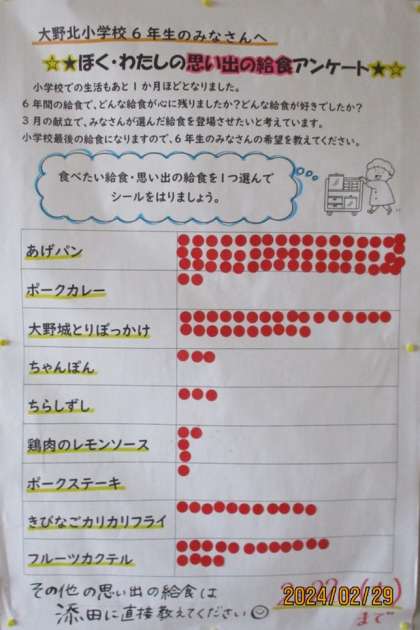 大野北小学校6年生のみなさんへ
☆★ぼく・わたしの思い出の給食アンケート★☆
小学校での生活もあと1か月ほどとなりました。
6年間の給食で、どんな給食が心に残りましたか？どんな給食が好きでしたか？
3月の献立で、みなさんが選んだ給食を登場させたいと考えています。
小学校最後の給食になりますので、6年生のみなさんの希望を教えてください。
食べたい給食・思い出の給食を1つ選んで
シールをはりましょう。
あげパン
ポークカレー
大野城とりぼっかけ
ちゃんぽん
ちらしずし
鶏肉のレモンソース
ポークステーキ
きびなごカリカリフライ
フルーツカクテル
その他の思い出の給食は
添田に直接教えてください
まで
2024/02/29